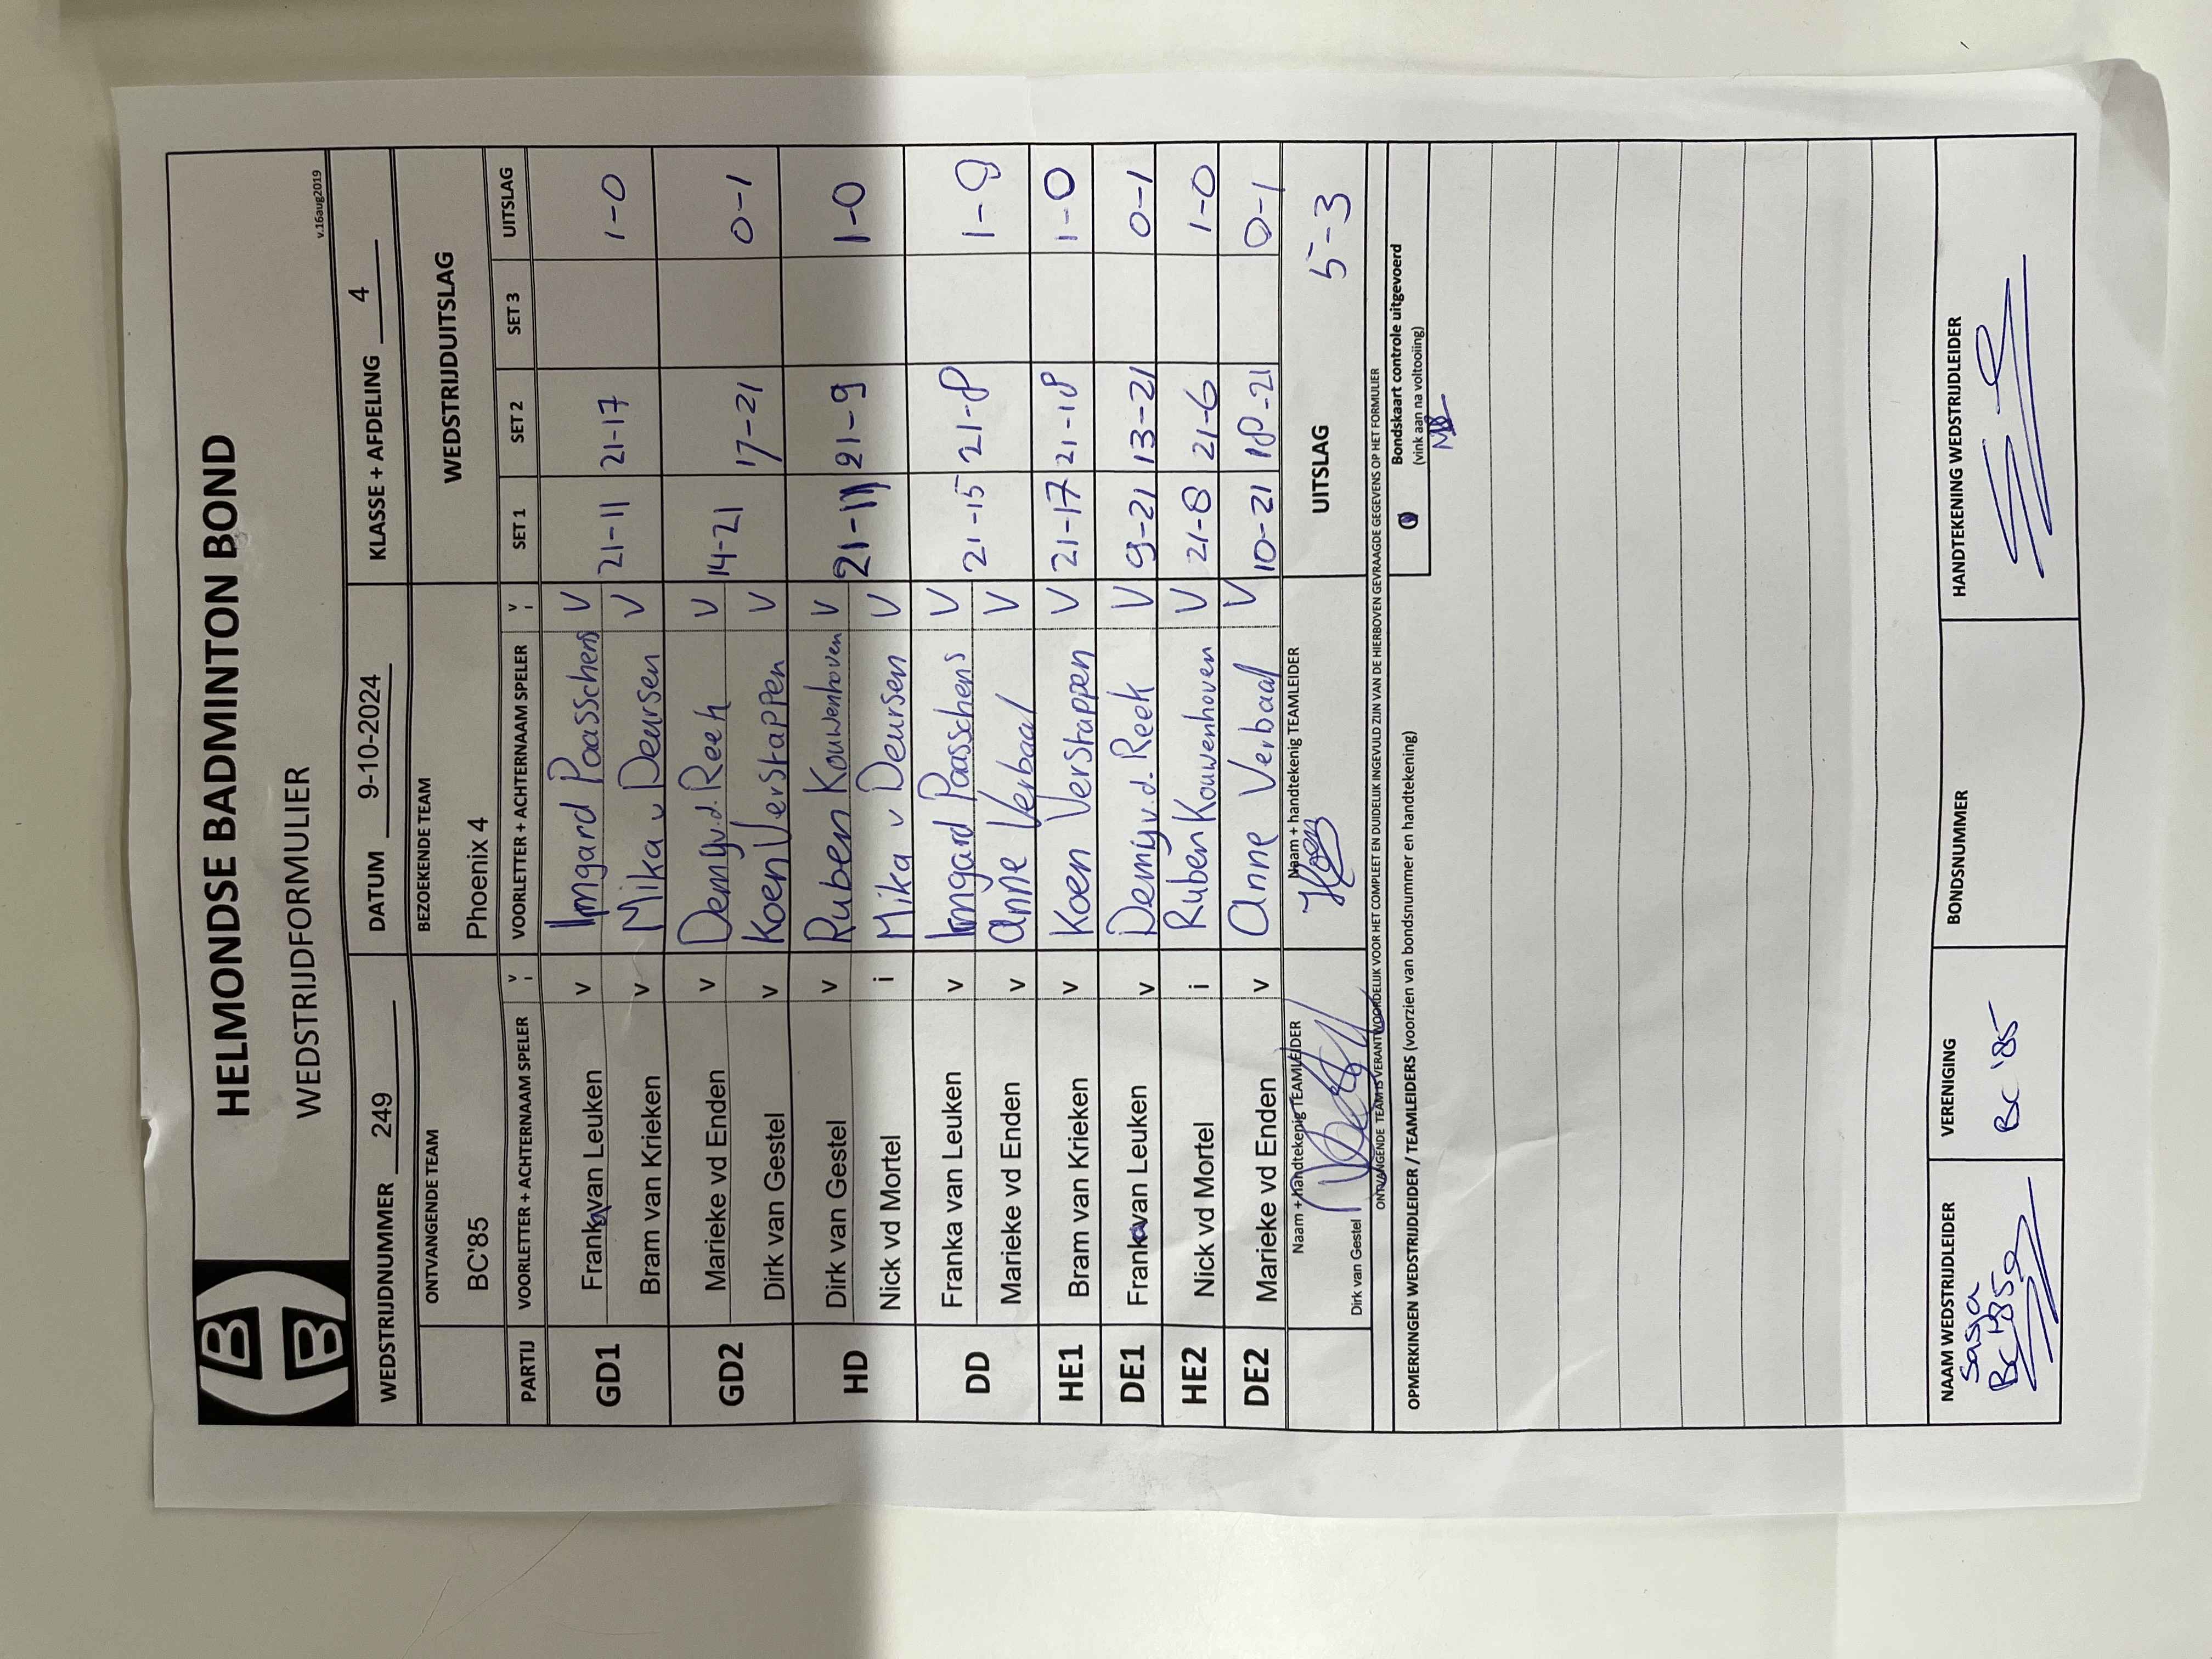 HELMONDSE BADMINTON BOND
WEDSTRIJDFORMULIER
v.16aug2019
WEDSTRIJDNUMMER 249 DATUM 9-10-2024 KLASSE + AFDELING 4
ONTVANGENDE TEAM BEZOEKENDE TEAM WEDSTRIJDUITSLAG
BC'85 Phoenix 4
PARTIJ VOORLETTER + ACHTERNAAM SPELER v i VOORLETTER + ACHTERNAAM SPELER v i SET 1 SET 2 SET 3 UITSLAG
GD1 Franka van Leuken v Irmgard Paasschens V 21-11 21-17 1-0
Bram van Krieken v Mika v Deursen V
GD2 Marieke vd Enden v Demy v.d. Reek V 14-21 17-21 0-1
Dirk van Gestel v Koen Verstappen V
HD Dirk van Gestel v Ruben Kouwenhoven V 21-11 21-9 1-0
Nick vd Mortel i Mika v Deursen V
DD Franka van Leuken v Irmgard Paasschens V 21-15 21-8 1-0
Marieke vd Enden v Anne Verbaal V
HE1 Bram van Krieken v Koen Verstappen V 21-17 21-18 1-0
DE1 Franka van Leuken v Demy v.d. Reek V 9-21 13-21 0-1
HE2 Nick vd Mortel i Ruben Kouwenhoven V 21-8 21-6 1-0
DE2 Marieke vd Enden v Anne Verbaal V 10-21 18-21 0-1
Naam + handtekenig TEAMLEIDER Naam + handtekenig TEAMLEIDER UITSLAG 5-3
Dirk van Gestel Koen
ONTVANGENDE TEAM IS VERANTWOORDELIJK VOOR HET COMPLEET EN DUIDELIJK INGEVULD ZIJN VAN DE HIERBOVEN GEVRAAGDE GEGEVENS OP HET FORMULIER
OPMERKINGEN WEDSTRIJDLEIDER / TEAMLEIDERS (voorzien van bondsnummer en handtekening)
Bondskaart controle uitgevoerd
(vink aan na voltooiing)
NAAM WEDSTRIJDLEIDER VERENIGING BONDSNUMMER HANDTEKENING WEDSTRIJDLEIDER
Sasja
BC'85 BC '85